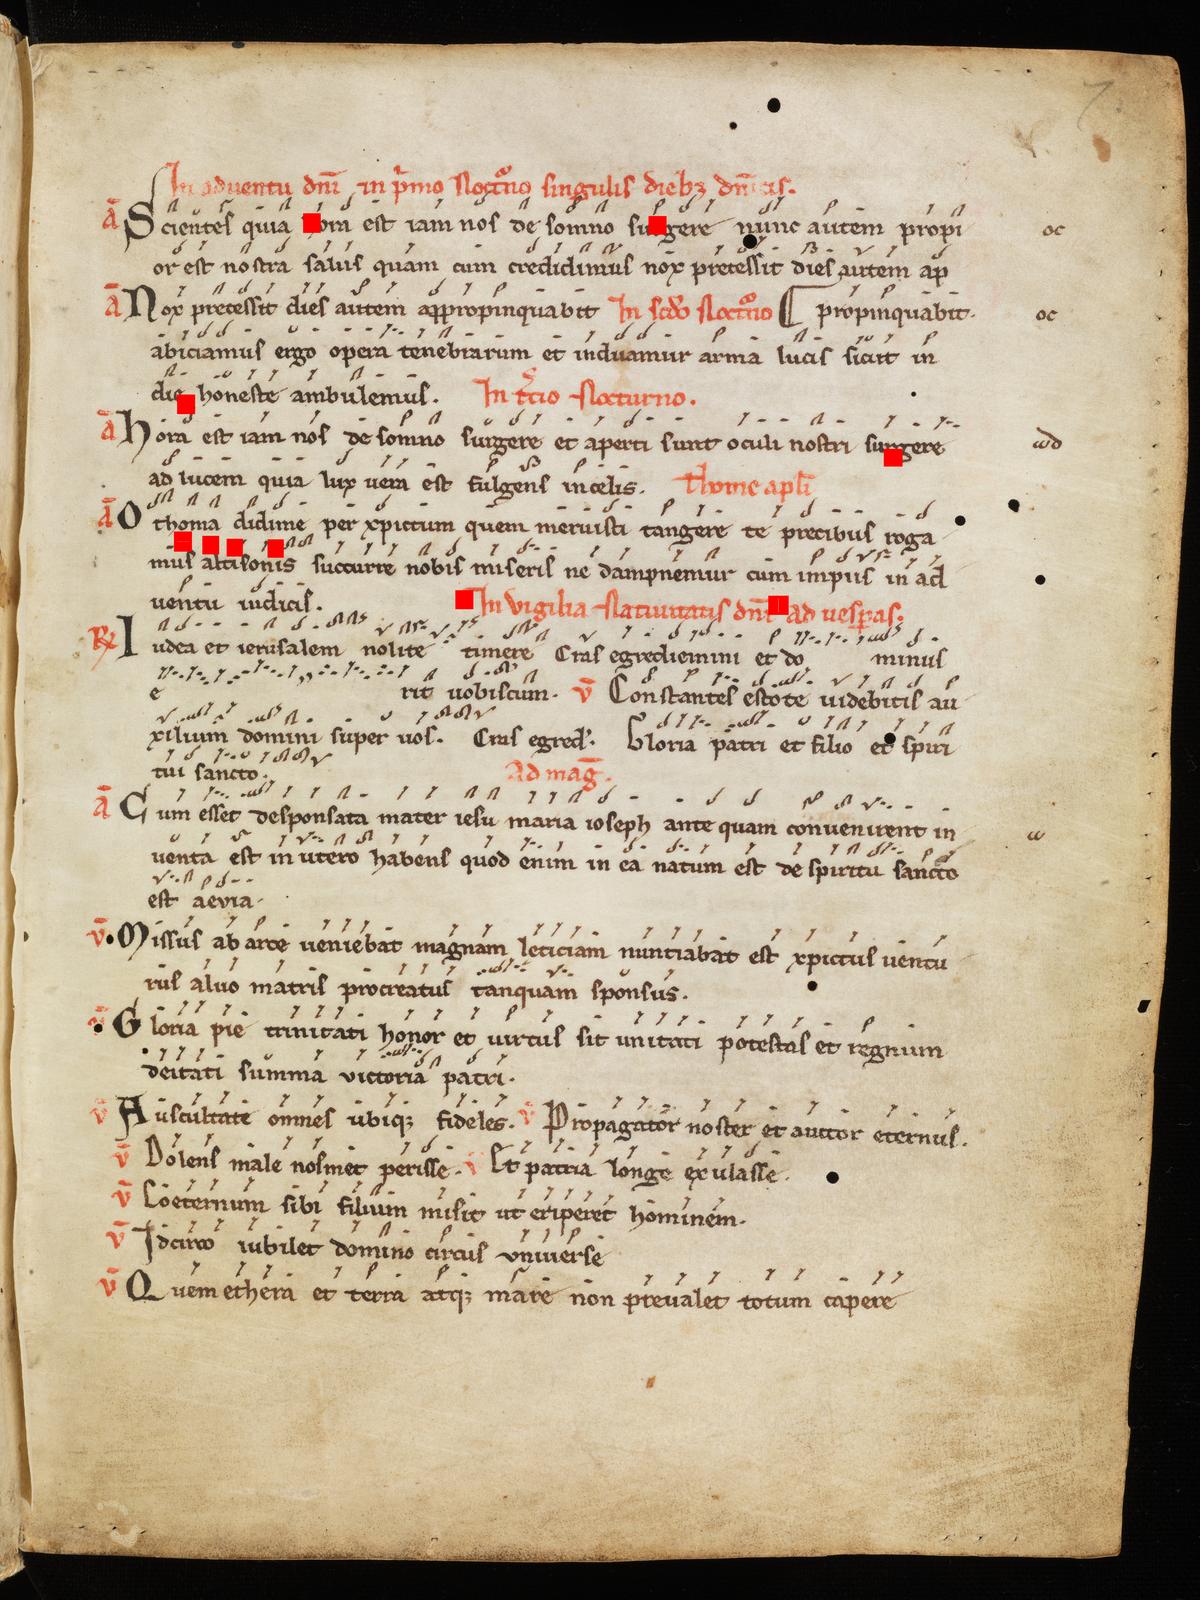 7
In aduentu dnī in p̄mo Nocturno singulis dieb3
ā Scientes quia est iam nos de somno nunc autem propi oc
or est nostra salus quam cum credidimus nox precessit dies autem ap
ā Nox precessit dies autem appropinquabit In scdo Nocturno propinquabit. oc
abiciamus ergo opera tenebrarum et induamur arma lucis sicut in
die honeste ambulemus. In t̄cio Nocturno.
ā hora est iam nos de somno surgere et aperti sunt oculi nostri surgere
ad lucem quia lux uera est fulgens in celis. thome apli
ā O thoma didime per xpictum quem meruisti tangere te precibus roga
mus altisonis succurre nobis miseris ne dampnemur cum impiis in ad
uentu iudicis. In vigilia Natiuitatis dnī ad uesperas.
R Iudea et ierusalem nolite timere Cras egrediemini et do minus
e rit uobiscum. v̄ Constantes estote uidebitis au
xilium domini super uos. Cras egred. Gloria patri et filio et spiri
tui sancto. Ad mag̅.
ā Cum esset desponsata mater iesu maria ioseph ante quam conuenirent in
uenta est in utero habens quod enim in ea natum est de spiritu sancto
est aeuia.
v̄ Missus ab arce ueniebat magnam leticiam nuntiabat est xpictus uentu
rus aluo matris procreatus tanquam sponsus.
Gloria pie trinitati honor et uirtus sit unitati potestas et regnum
deitati summa victoria patri.
v̄ Auscultate omnes ubiq3 fideles. v̄ Propagator noster et auctor eternus.
v̄ Dolens male nosmet perisse. v̄ Et patria longe exulasse.
v̄ Coeternum sibi filium misit ut eriperet hominem.
v̄ Idcirco iubilet domino circus vniuerse
v̄ Quem ethera et terra atq3 mare non preualet totum capere